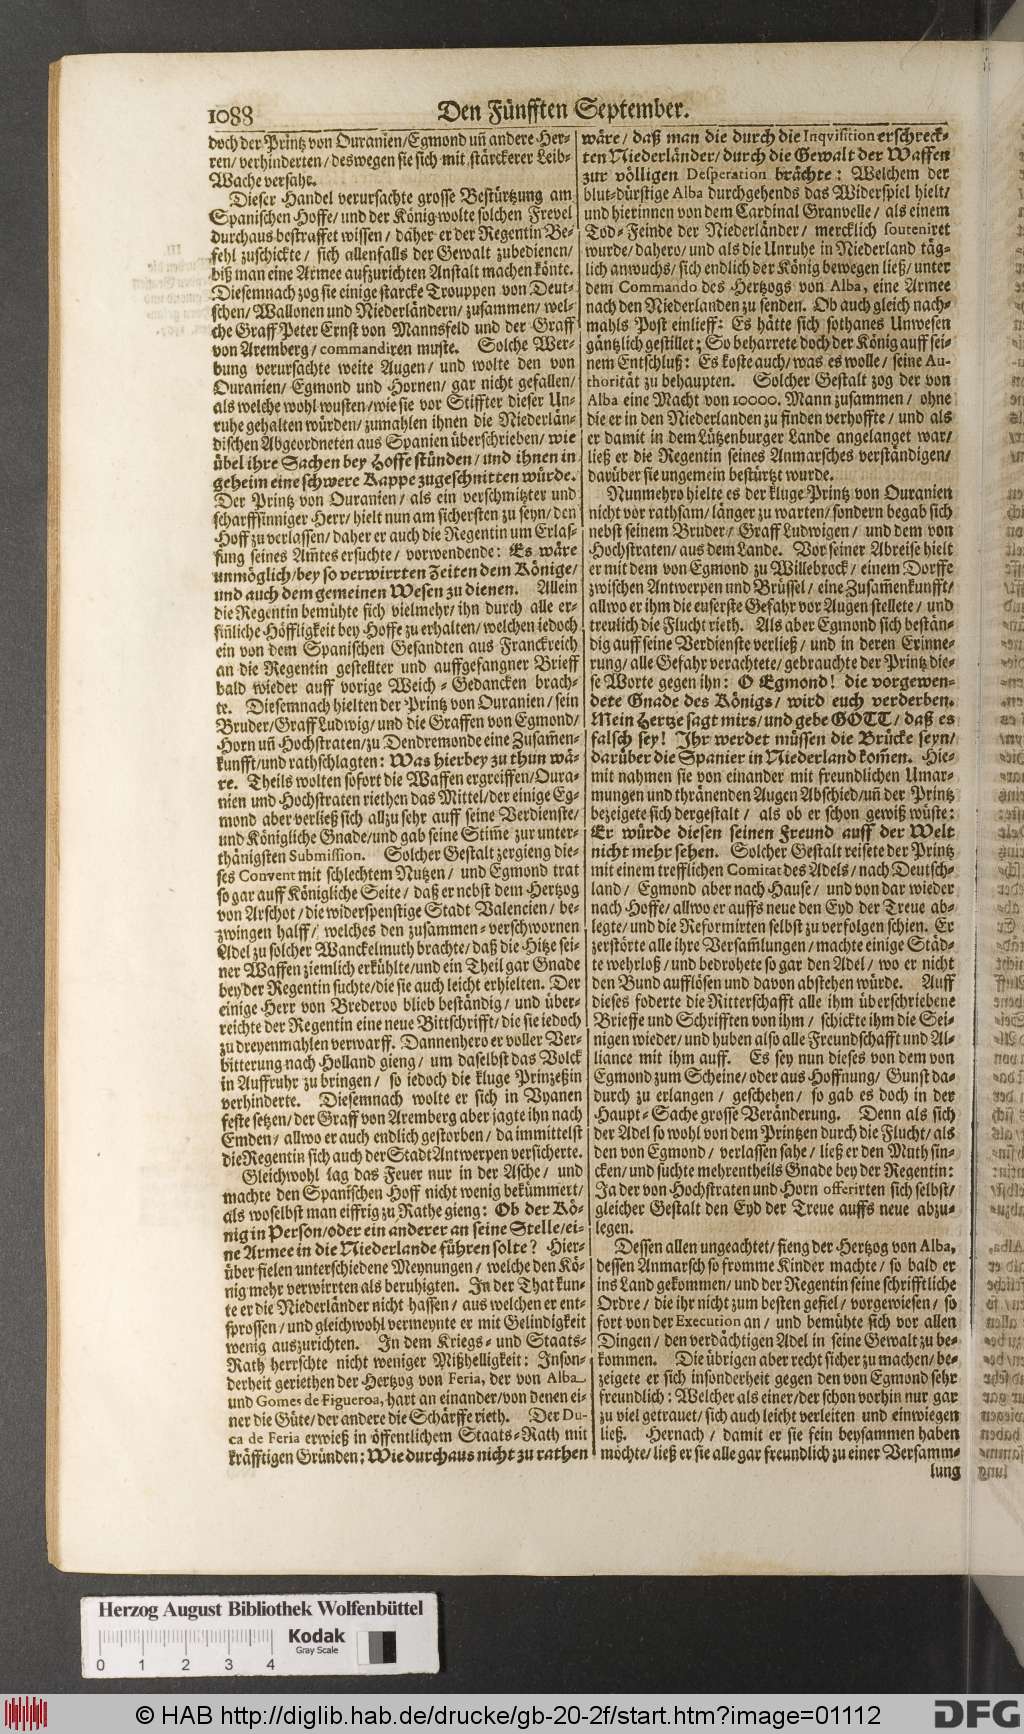 1088
Den Fünfften September.
doch der Printz von Ouranien/Egmond uñ andere Her-
ren/verhinderten/deswegen sie sich mit stärckerer Leib-
Wache versahe.
Dieser Handel verursachte grosse Bestürtzung am
Spanischen Hoffe/und der König wolte solchen Frevel
durchaus bestraffet wissen/ daher er der Regentin Be-
fehl zuschickte/ sich allenfalls der Gewalt zubedienen/
biß man eine Armee aufzurichten Anstalt machen könte.
Diesemnach zog sie einige starcke Trouppen von Deut-
schen/ Wallonen und Niederländern/ zusammen/ wel-
che Graff Peter Ernst von Mannsfeld und der Graff
von Aremberg/ commandiren muste. Solche Wer-
bung verursachte weite Augen/ und wolte den von
Ouranien/ Egmond und Hornen/ gar nicht gefallen/
als welche wohl wusten/wie sie vor Stiffter dieser Un-
ruhe gehalten würden/ zumahlen ihnen die Niederlän-
dischen Abgeordneten aus Spanien überschrieben/ wie
übel ihre Sachen bey Hoffe stünden/ und ihnen in
geheim eine schwere Kappe zugeschnitten würde.
Der Printz von Ouranien/ als ein verschmitzter und
scharffsinniger Herr/ hielt nun am sichersten zu seyn/ den
Hoff zu verlassen/ daher er auch die Regentin um Erlas-
sung seines Am̃tes ersuchte/ vorwendende: Es wäre
unmöglich/bey so verwirrten Zeiten dem Könige/
und auch dem gemeinen Wesen zu dienen. Allein
die Regentin bemühte sich vielmehr/ ihn durch alle er-
siñliche Höffligkeit bey Hoffe zu erhalten/ welchen jedoch
ein von dem Spanischen Gesandten aus Franckreich
an die Regentin gestellter und auffgefangner Brieff
bald wieder auff vorige Weich-Gedancken brach-
te. Diesemnach hielten der Printz von Ouranien/ sein
Bruder/Graff Ludwig/ und die Graffen von Egmond/
Horn uñ Hochstraten/zu Dendremonde eine Zusam̃en-
kunfft/und rathschlagten: Was hierbey zu thun wä-
re. Theils wolten sofort die Waffen ergreiffen/Oura-
nien und Hochstraten riethen das Mittel/der einige Eg-
mond aber verließ sich allzu sehr auff seine Verdienste/
und Königliche Gnade/und gab seine Stim̃e zur unter-
thänigsten Submission. Solcher Gestalt zergieng die-
ses Convent mit schlechtem Nutzen/ und Egmond trat
so gar auff Königliche Seite/ daß er nebst dem Hertzog
von Arschot/ die widerspenstige Stadt Valencien/ be-
zwingen halff/ welches den zusammen-verschwornen
Adel zu solcher Wanckelmuth brachte/ daß die Hitze sei-
ner Waffen ziemlich erkühlte/und ein Theil gar Gnade
bey der Regentin suchte/die sie auch leicht erhielten. Der
einige Herr von Brederoo blieb beständig/ und über-
reichte der Regentin eine neue Bittschrifft/ die sie jedoch
zu dreyenmahlen verwarff. Dannenhero er voller Ver-
bitterung nach Holland gieng/ um daselbst das Volck
in Auffruhr zu bringen/ so jedoch die kluge Printzeßin
verhinderte. Diesemnach wolte er sich in Vyanen
feste setzen/ der Graff von Aremberg aber jagte ihn nach
Emden/ allwo er auch endlich gestorben/ da immittelst
die Regentin sich auch der Stadt Antwerpen versicherte.
Gleichwohl lag das Feuer nur in der Asche/ und
machte den Spanischen Hoff nicht wenig bekümmert/
als woselbst man eiffrig zu Rathe gieng: Ob der Kö-
nig in Person/oder ein anderer an seine Stelle/ei-
ne Armee in die Niederlande führen solte? Hier-
über fielen unterschiedene Meynungen/ welche den Kö-
nig mehr verwirrten als beruhigten. In der That kun-
te er die Niederländer nicht hassen/ aus welchen er ent-
sprossen/und gleichwohl vermeynte er mit Gelindigkeit
wenig auszurichten. In dem Kriegs- und Staats-
Rath herrschte nicht weniger Mißhelligkeit: Inson-
derheit geriethen der Hertzog von Feria, der von Alba
und Gomes de Figueroa, hart an einander/von denen ei-
ner die Güte/ der andere die Schärffe rieth. Der Du-
ca de Feria erwieß in öffentlichem Staats-Rath mit
kräfftigen Gründen; Wie durchaus nicht zu rathen
wäre/ daß man die durch die Inqvisition erschreck-
ten Niederländer/ durch die Gewalt der Waffen
zur völligen Desperation brächte: Welchem der
blut-dürstige Alba durchgehends das Widerspiel hielt/
und hierinnen von dem Cardinal Granvelle/ als einem
Tod-Feinde der Niederländer/ mercklich souteniret
wurde/ dahero/ und als die Unruhe in Niederland täg-
lich anwuchs/ sich endlich der König bewegen ließ/ unter
dem Commando des Hertzogs von Alba, eine Armee
nach den Niederlanden zu senden. Ob auch gleich nach-
mahls Post einlieff: Es hätte sich sothanes Unwesen
gäntzlich gestillet; So beharrete doch der König auff sei-
nem Entschluß: Es koste auch/ was es wolle/ seine Au-
thorität zu behaupten. Solcher Gestalt zog der von
Alba eine Macht von 10000. Mann zusammen/ ohne
die er in den Niederlanden zu finden verhoffte/ und als
er damit in dem Lützenburger Lande angelanget war/
ließ er die Regentin seines Anmarsches verständigen/
darüber sie ungemein bestürtzt wurde.
Nunmehro hielte es der kluge Printz von Ouranien
nicht vor rathsam/ länger zu warten/ sondern begab sich
nebst seinem Bruder/ Graff Ludwigen/ und dem von
Hochstraten/ aus dem Lande. Vor seiner Abreise hielt
er mit dem von Egmond zu Willebrock/ einem Dorffe
zwischen Antwerpen und Brüssel/ eine Zusam̃enkunfft/
allwo er ihm die euserste Gefahr vor Augen stellete/ und
treulich die Flucht rieth. Als aber Egmond sich bestän-
dig auff seine Verdienste verließ/ und in deren Erinne-
rung/ alle Gefahr verachtete/ gebrauchte der Printz die-
se Worte gegen ihn: O Egmond! die vorgewen-
dete Gnade des Königs/ wird euch verderben.
Mein Hertze sagt mirs/ und gebe GOTT/ daß es
falsch sey! Ihr werdet müssen die Brücke seyn/
darüber die Spanier in Niederland kom̃en. Hie-
mit nahmen sie von einander mit freundlichen Umar-
mungen und thränenden Augen Abschied/uñ der Printz
bezeigete sich dergestalt/ als ob er schon gewiß wüste:
Er würde diesen seinen Freund auff der Welt
nicht mehr sehen. Solcher Gestalt reisete der Printz
mit einem trefflichen Comitat des Adels/ nach Deutsch-
land/ Egmond aber nach Hause/ und von dar wieder
nach Hoffe/ allwo er auffs neue den Eyd der Treue ab-
legte/ und die Reformirten selbst zu verfolgen schien. Er
zerstörte alle ihre Versam̃lungen/ machte einige Städ-
te wehrloß/ und bedrohete so gar den Adel/ wo er nicht
den Bund aufflösen und davon abstehen würde. Auff
dieses foderte die Ritterschafft alle ihm überschriebene
Brieffe und Schrifften von ihm/ schickte ihm die Sei-
nigen wieder/ und huben also alle Freundschafft und Al-
liance mit ihm auff. Es sey nun dieses von dem von
Egmond zum Scheine/ oder aus Hoffnung/ Gunst da-
durch zu erlangen/ geschehen/ so gab es doch in der
Haupt-Sache grosse Veränderung. Denn als sich
der Adel so wohl von dem Printzen durch die Flucht/ als
den von Egmond/ verlassen sahe/ ließ er den Muth sin-
cken/ und suchte mehrentheils Gnade bey der Regentin:
Ja der von Hochstraten und Horn offerirten sich selbst/
gleicher Gestalt den Eyd der Treue auffs neue abzu-
legen.
Dessen allen ungeachtet/ fieng der Hertzog von Alba,
dessen Anmarsch so fromme Kinder machte/ so bald er
ins Land gekommen/ und der Regentin seine schrifftliche
Ordre/ die ihr nicht zum besten gefiel/ vorgewiesen/ so
fort von der Execution an/ und bemühte sich vor allen
Dingen/ den verdächtigen Adel in seine Gewalt zu be-
kommen. Die übrigen aber recht sicher zu machen/ be-
zeigete er sich insonderheit gegen den von Egmond sehr
freundlich: Welcher als einer/ der schon vorhin nur gar
zu viel getrauet/ sich auch leicht verleiten und einwiegen
ließ. Hernach/ damit er sie fein beysammen haben
möchte/ ließ er sie alle gar freundlich zu einer Versamm-
lung
Herzog August Bibliothek Wolfenbüttel
Kodak
Gray Scale
0 1 2 3 4
© HAB http://diglib.hab.de/drucke/gb-20-2f/start.htm?image=01112
DFG